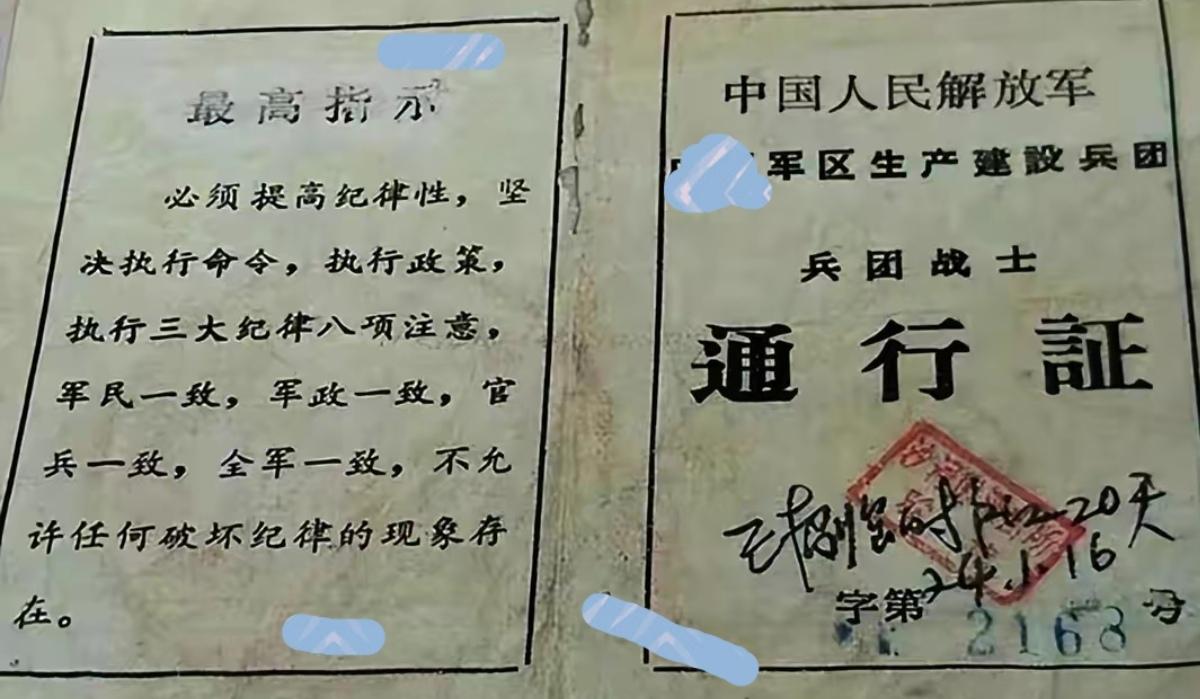 最高指示
必须提高纪律性，坚
决执行命令，执行政策，
执行三大纪律八项注意，
军民一致，军政一致，官
兵一致，全军一致，不允
许任何破坏纪律的现象存
在。
中国人民解放军
军区生产建設兵团
兵团战士
通行証
20天
24.1.16
字第 2168 号